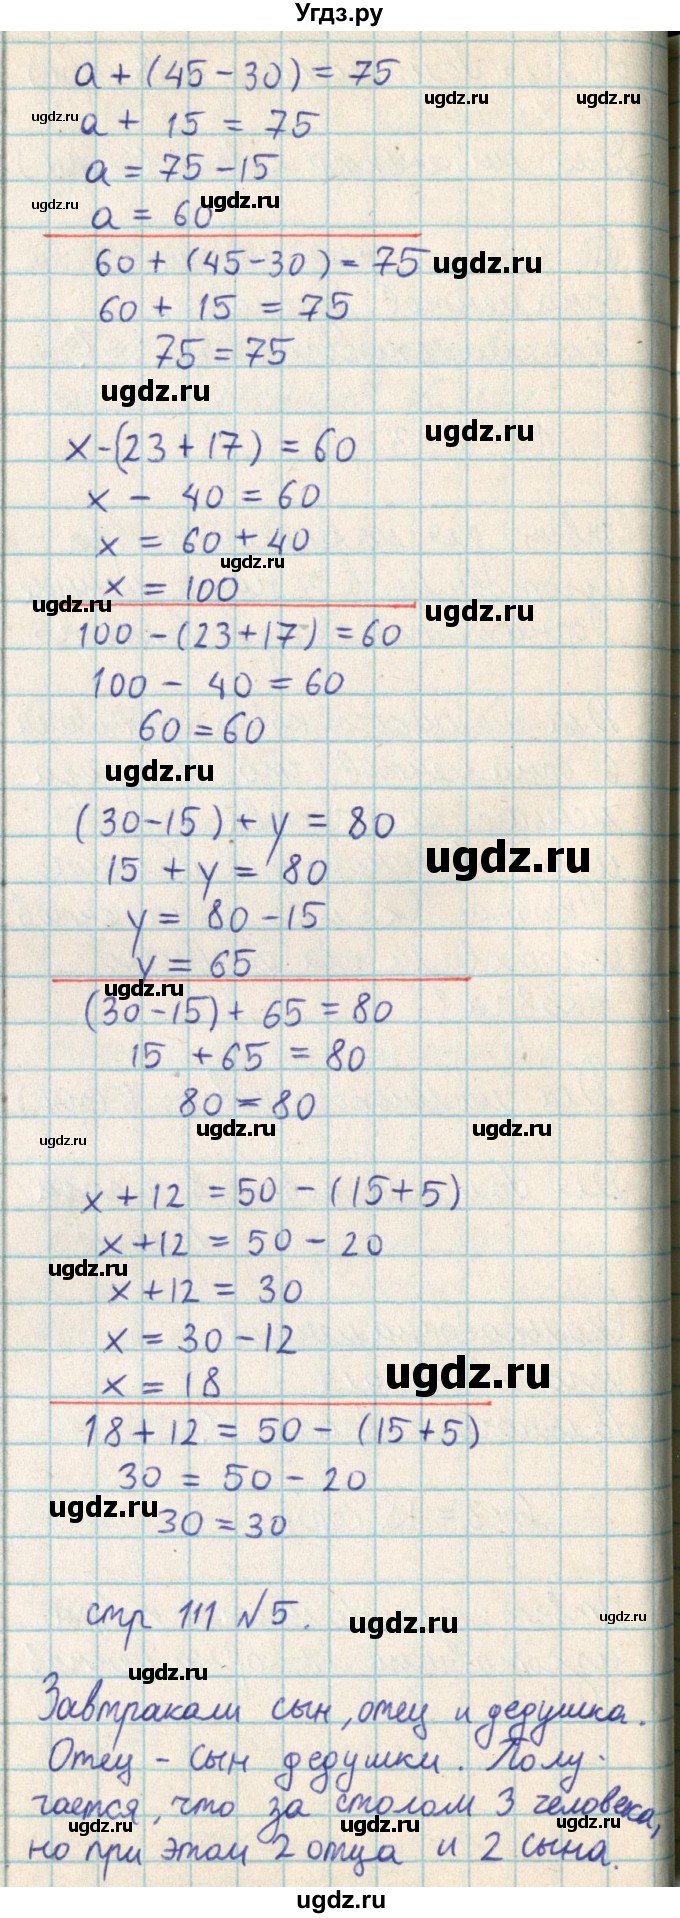 Угдз.ру
a + (45 - 30) = 75
ugdz.ru ugdz.ru
ugdz.ru
a + 15 = 75
a = 75 - 15
ugdz.ru ugdz.ru
a = 60
60 + (45 - 30) = 75
ugdz.ru
60 + 15 = 75
75 = 75
ugdz.ru
ugdz.ru
x - (23 + 17) = 60
x - 40 = 60
x = 60 + 40
ugdz.ru
x = 100
ugdz.ru
ugdz.ru
100 - (23 + 17) = 60
100 - 40 = 60
60 = 60
ugdz.ru
(30 - 15) + y = 80
ugdz.ru
15 + y = 80
y = 80 - 15
y = 65
ugdz.ru
(30 - 15) + 65 = 80
15 + 65 = 80
80 = 80
ugdz.ru ugdz.ru ugdz.ru
x + 12 = 50 - (15 + 5)
x + 12 = 50 - 20
ugdz.ru
x + 12 = 30
x = 30 - 12
ugdz.ru
x = 18
18 + 12 = 50 - (15 + 5)
30 = 50 - 20
ugdz.ru
30 = 30
стр 111 №5.
ugdz.ru ugdz.ru
ugdz.ru
Завтракали сын, отец и дедушка.
Отец - сын дедушки. Полу-
чается, что за столом 3 человека,
ugdz.ru ugdz.ru ugdz.ru
но при этом 2 отца и 2 сына.
ugdz.ru